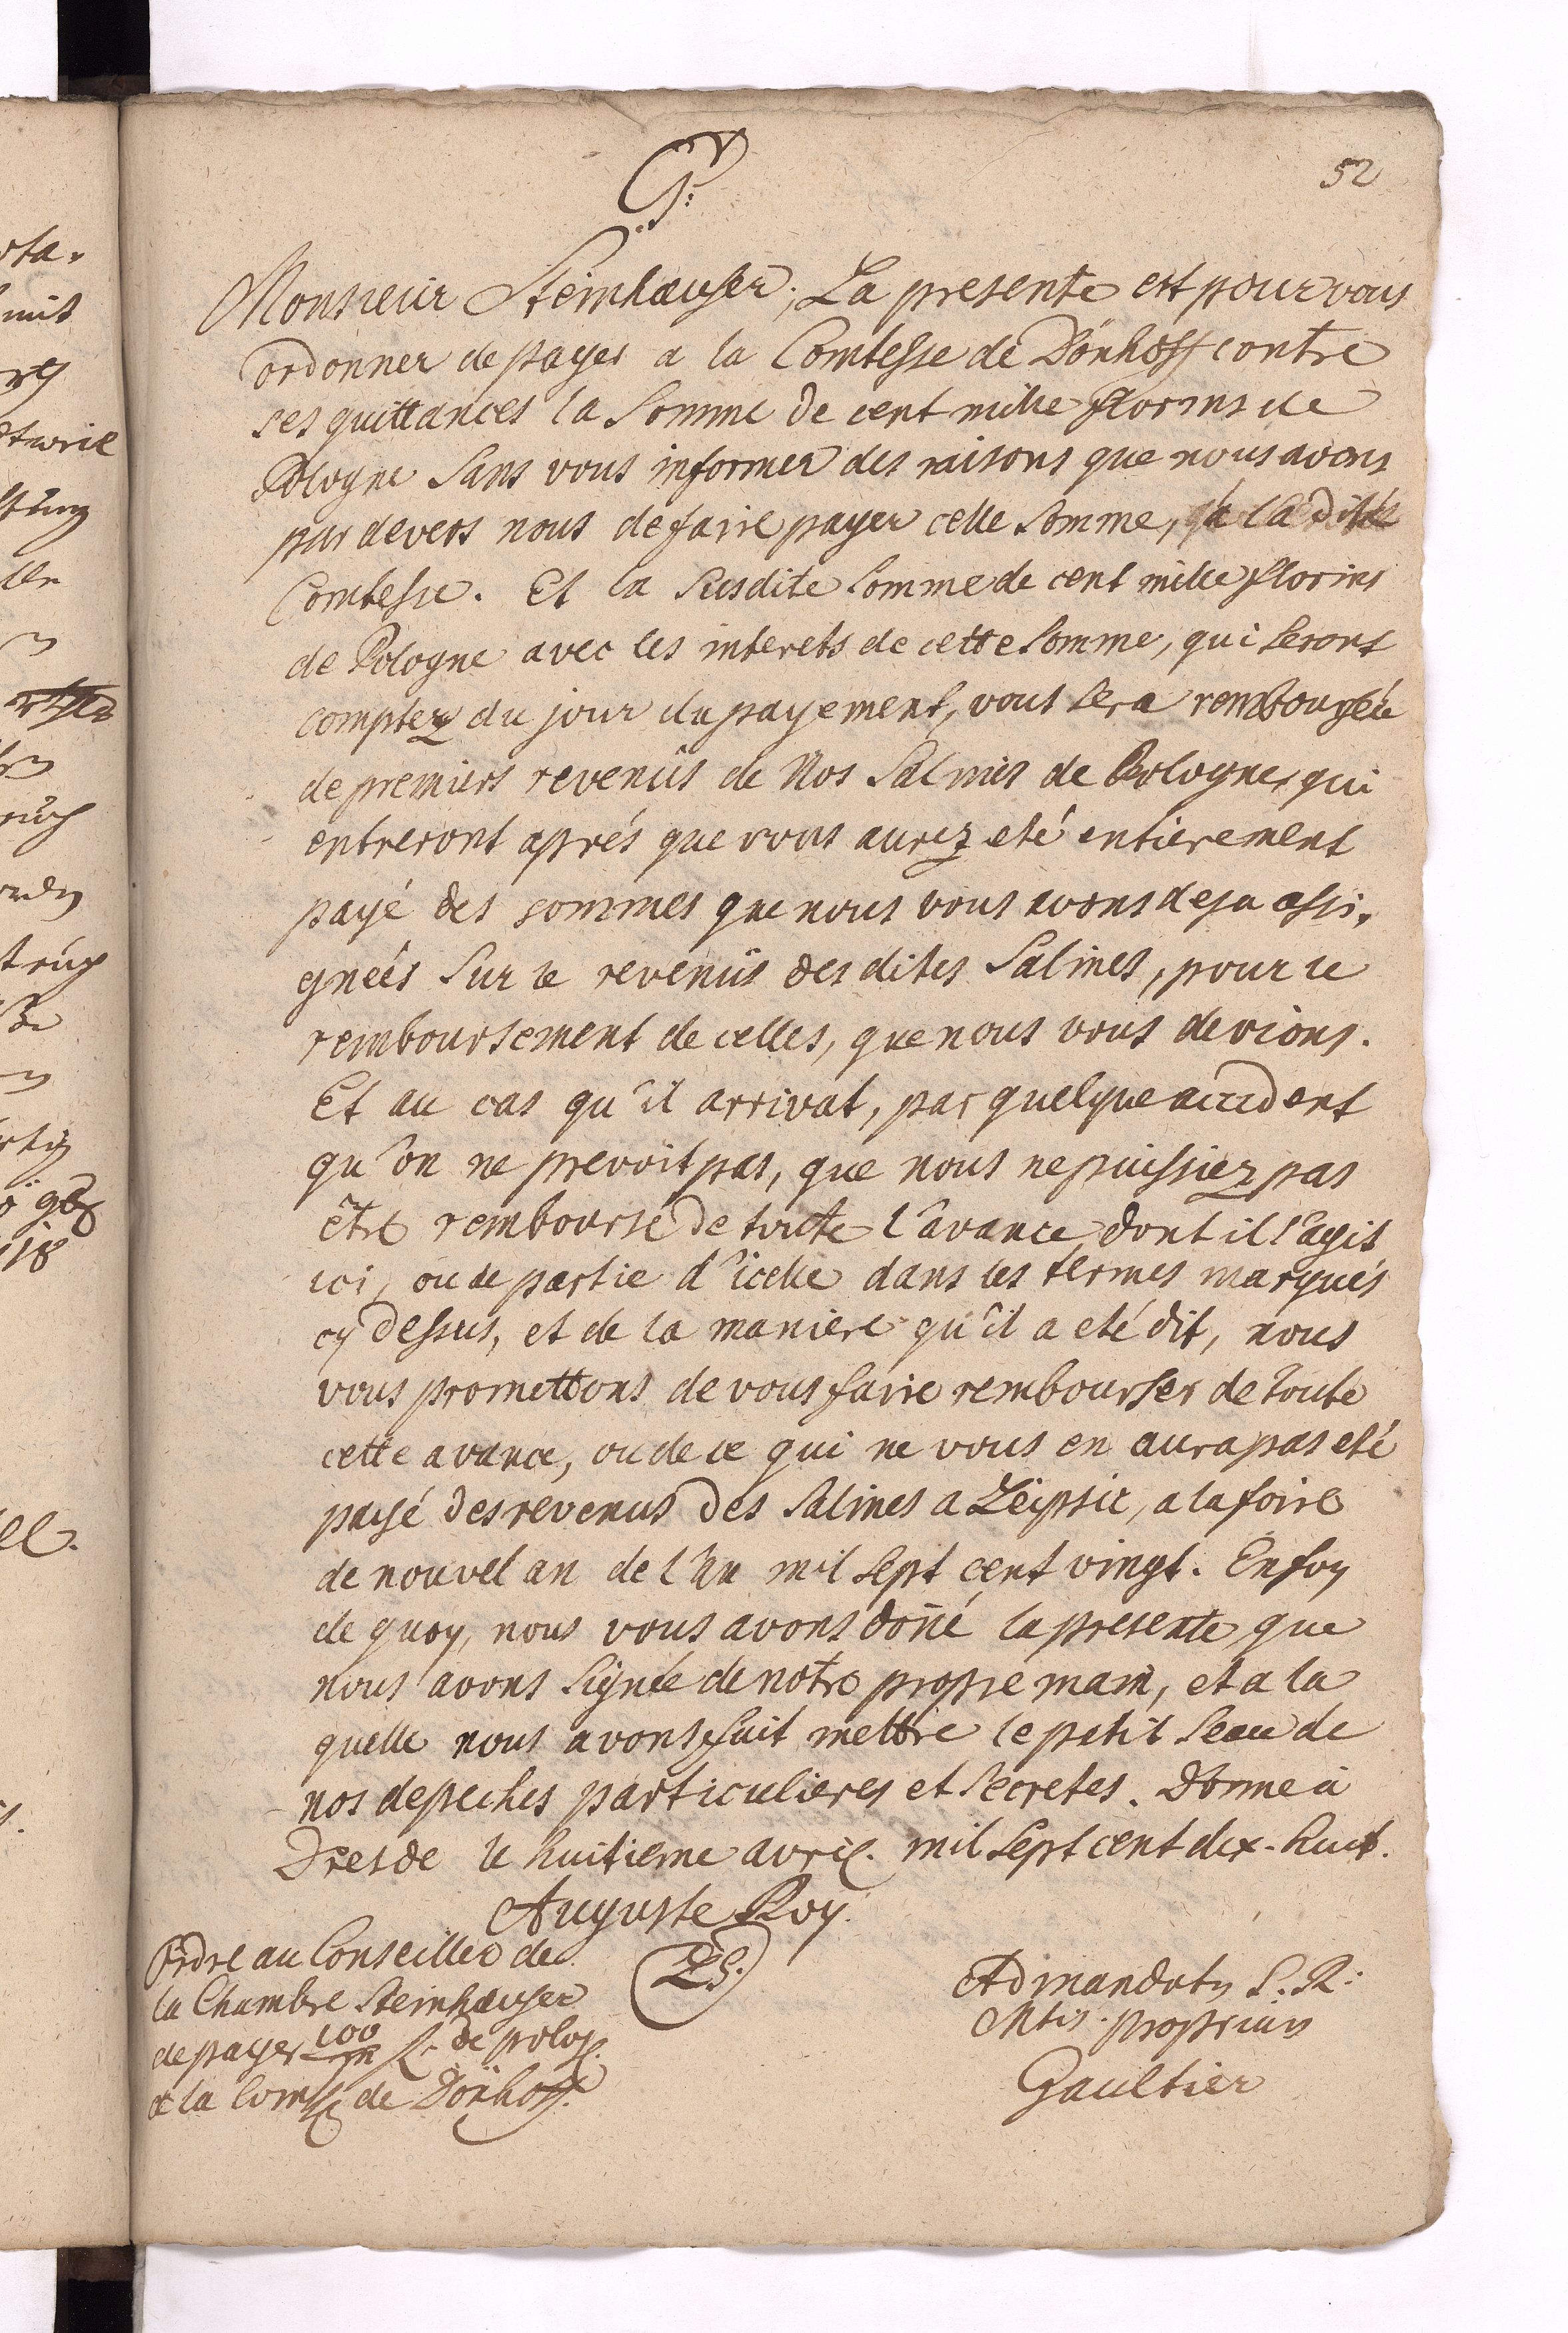 52
G:
Monsieur Steinhæuser; La presente est pour vous
ordonner de payer a la Comtesse de Dönhoff contre
ses quittances la Somme de cent mille florins de
Pologne Sans vous informer des raisons que nous avons
par devers nous de faire payer cette Somme, à la dite
Comtesse. Et la Susdite Somme de cent mille florins
de Pologne avec les interets de cette Somme, qui Seront
comptez du jour du payement, vous Sera remboursée
de premiers revenûs de Nos Salines de Pologne, qui
entreront aprés que vous aurez eté entierement
payé des sommes que nous vous avons deja assi-
gneés Sur le revenûs des dites Salines, pour le
remboursement de celles, que nous vous devions.
Et au cas qu'il arrivat, par quelque accident
qu'on ne prevoit pas, que nous ne puissiez pas
être remboursé de toute l'avance, dont il s'agit
ici, ou de partie d'icelle dans les termes marqués
cy dessus, et de la maniere qu'il a eté dit, nous
vous promettons de vous faire rembourser de toute
cette avance, ou de ce qui ne vous en aura pas eté
payé des revenus des Salines a Leipsic, a la foire
de nouvel an de l'an mil Sept cent vingt. En foy
de quoy, nous vous avons doñé la presente que
nous avons Signée de notre propre main, et a la
quelle nous avons fait mettre le petit Seau de
nos depeches particulieres et Secretes. Donne à
Dresde le huitieme avril. mil Sept cent dix-huit.
Auguste Roy.
Ordre au Conseiller de
la Chambre Steinhæuser
de payer 100/m fl. de polog.
a la Comtsse de Dönhoff.
LS.
Ad mandatu S. R:
Mtis. proprium
Gaultier